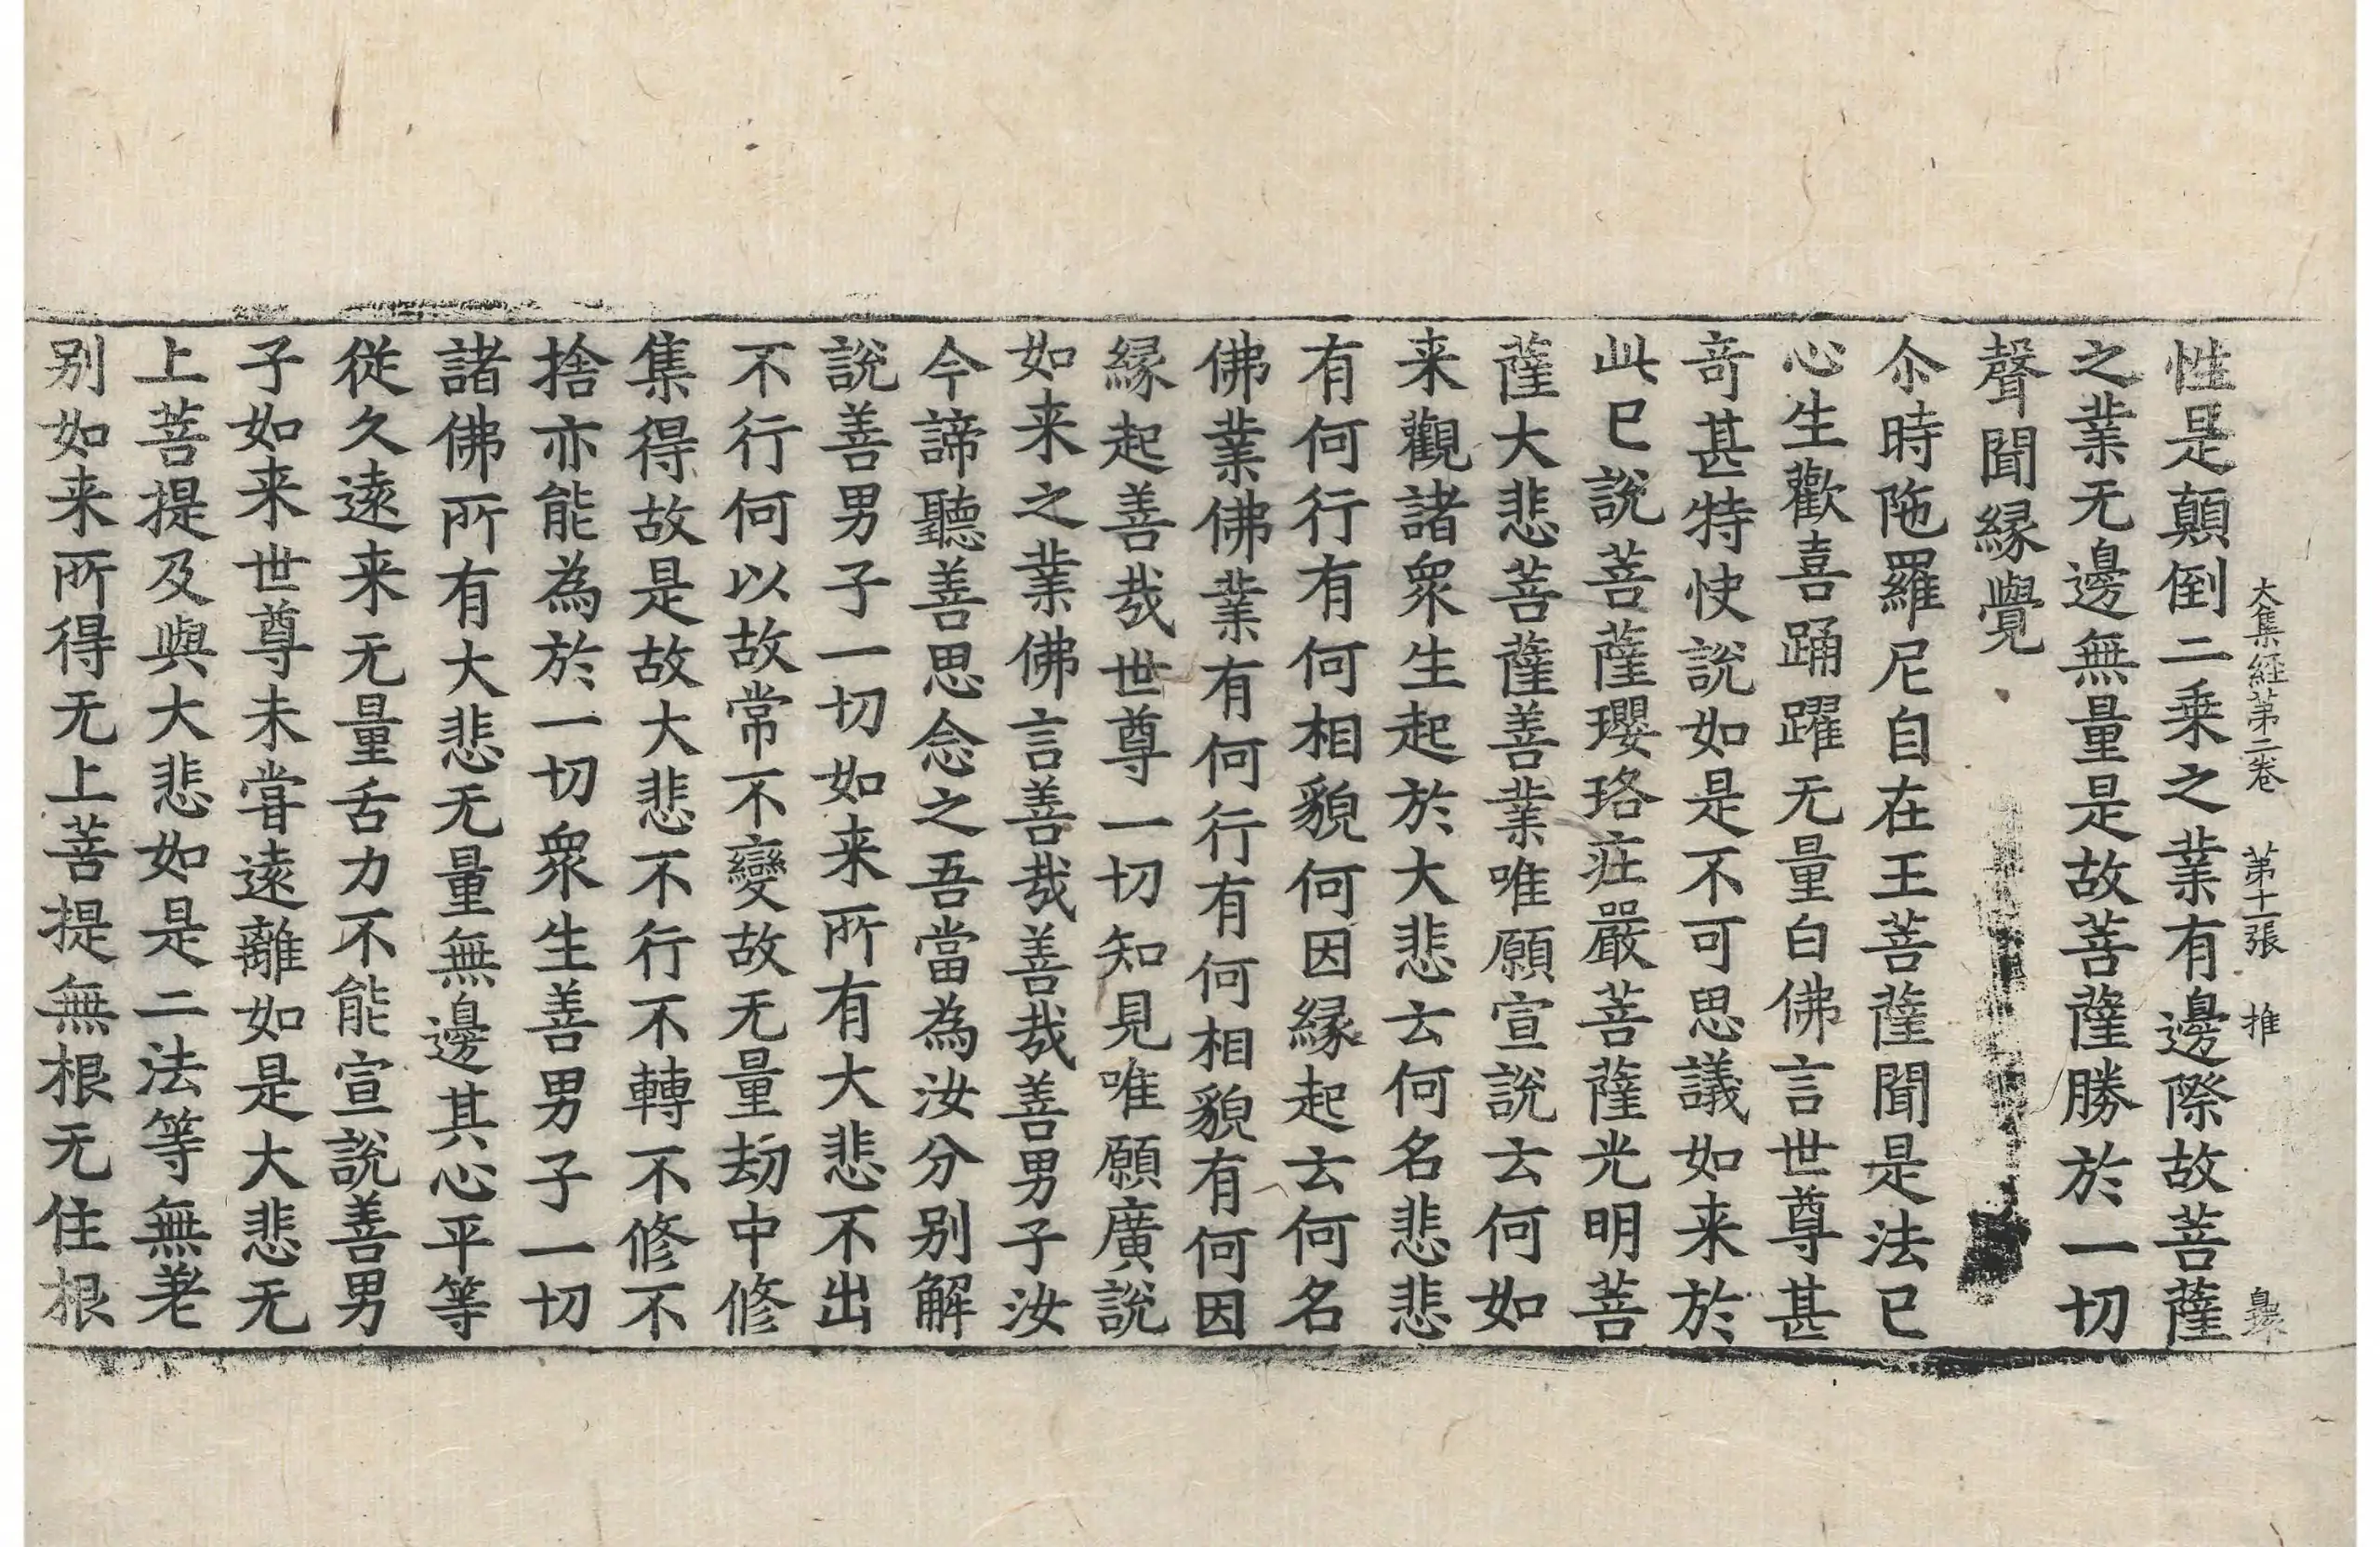 大集經第二卷 第十一張 推
性是顛倒二乗之業有邊際故菩薩
之業无邊無量是故菩薩勝於一切
聲聞縁覺
尒時陁羅尼自在王菩薩聞是法已
心生歡喜踊躍无量白佛言世尊甚
竒甚特快說如是不可思議如来於
此已說菩薩瓔珞莊嚴菩薩光明菩
薩大悲菩薩善業唯願宣說云何如
来觀諸衆生起於大悲云何名悲悲
有何行有何相貌何因縁起云何名
佛業佛業有何行有何相貌有何因
縁起善㢤世尊一切知見唯願廣說
如来之業佛言善㢤善㢤善男子汝
今諦聽善思念之吾當為汝分别解
說善男子一切如来所有大悲不出
不行何以故常不變故无量劫中修
集得故是故大悲不行不轉不修不
捨亦能為於一切衆生善男子一切
諸佛所有大悲无量無邊其心平等
従久遠来无量舌力不能宣說善男
子如来世尊未甞遠離如是大悲无
上菩提及與大悲如是二法等無差
别如来所得无上菩提無根无住根